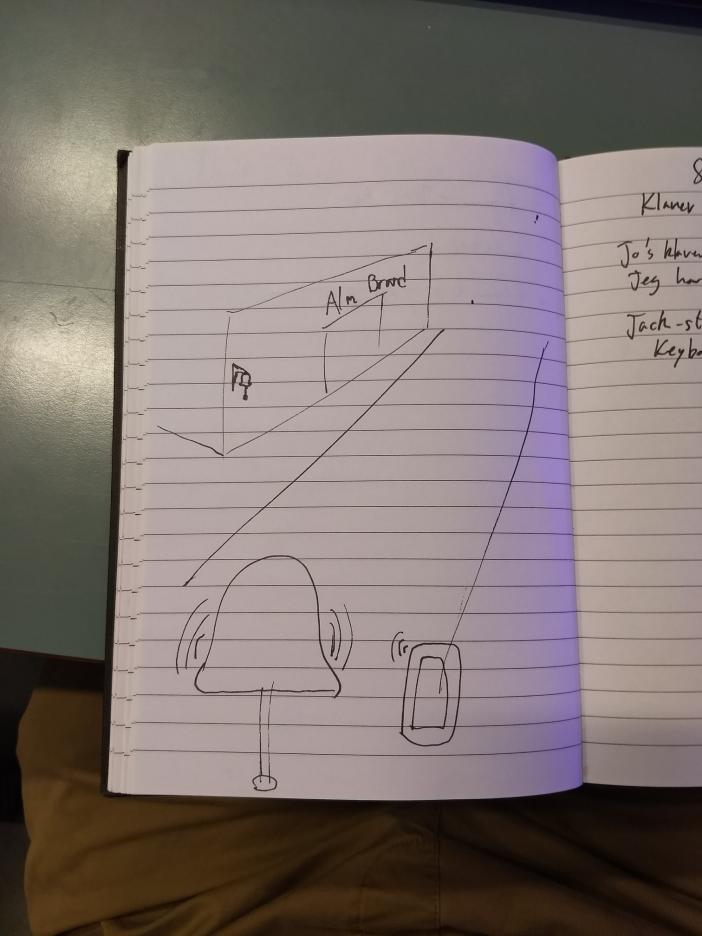 Alm Brand
8
Klaver
Jo's klave
Jeg har
Jack-st
Keybo